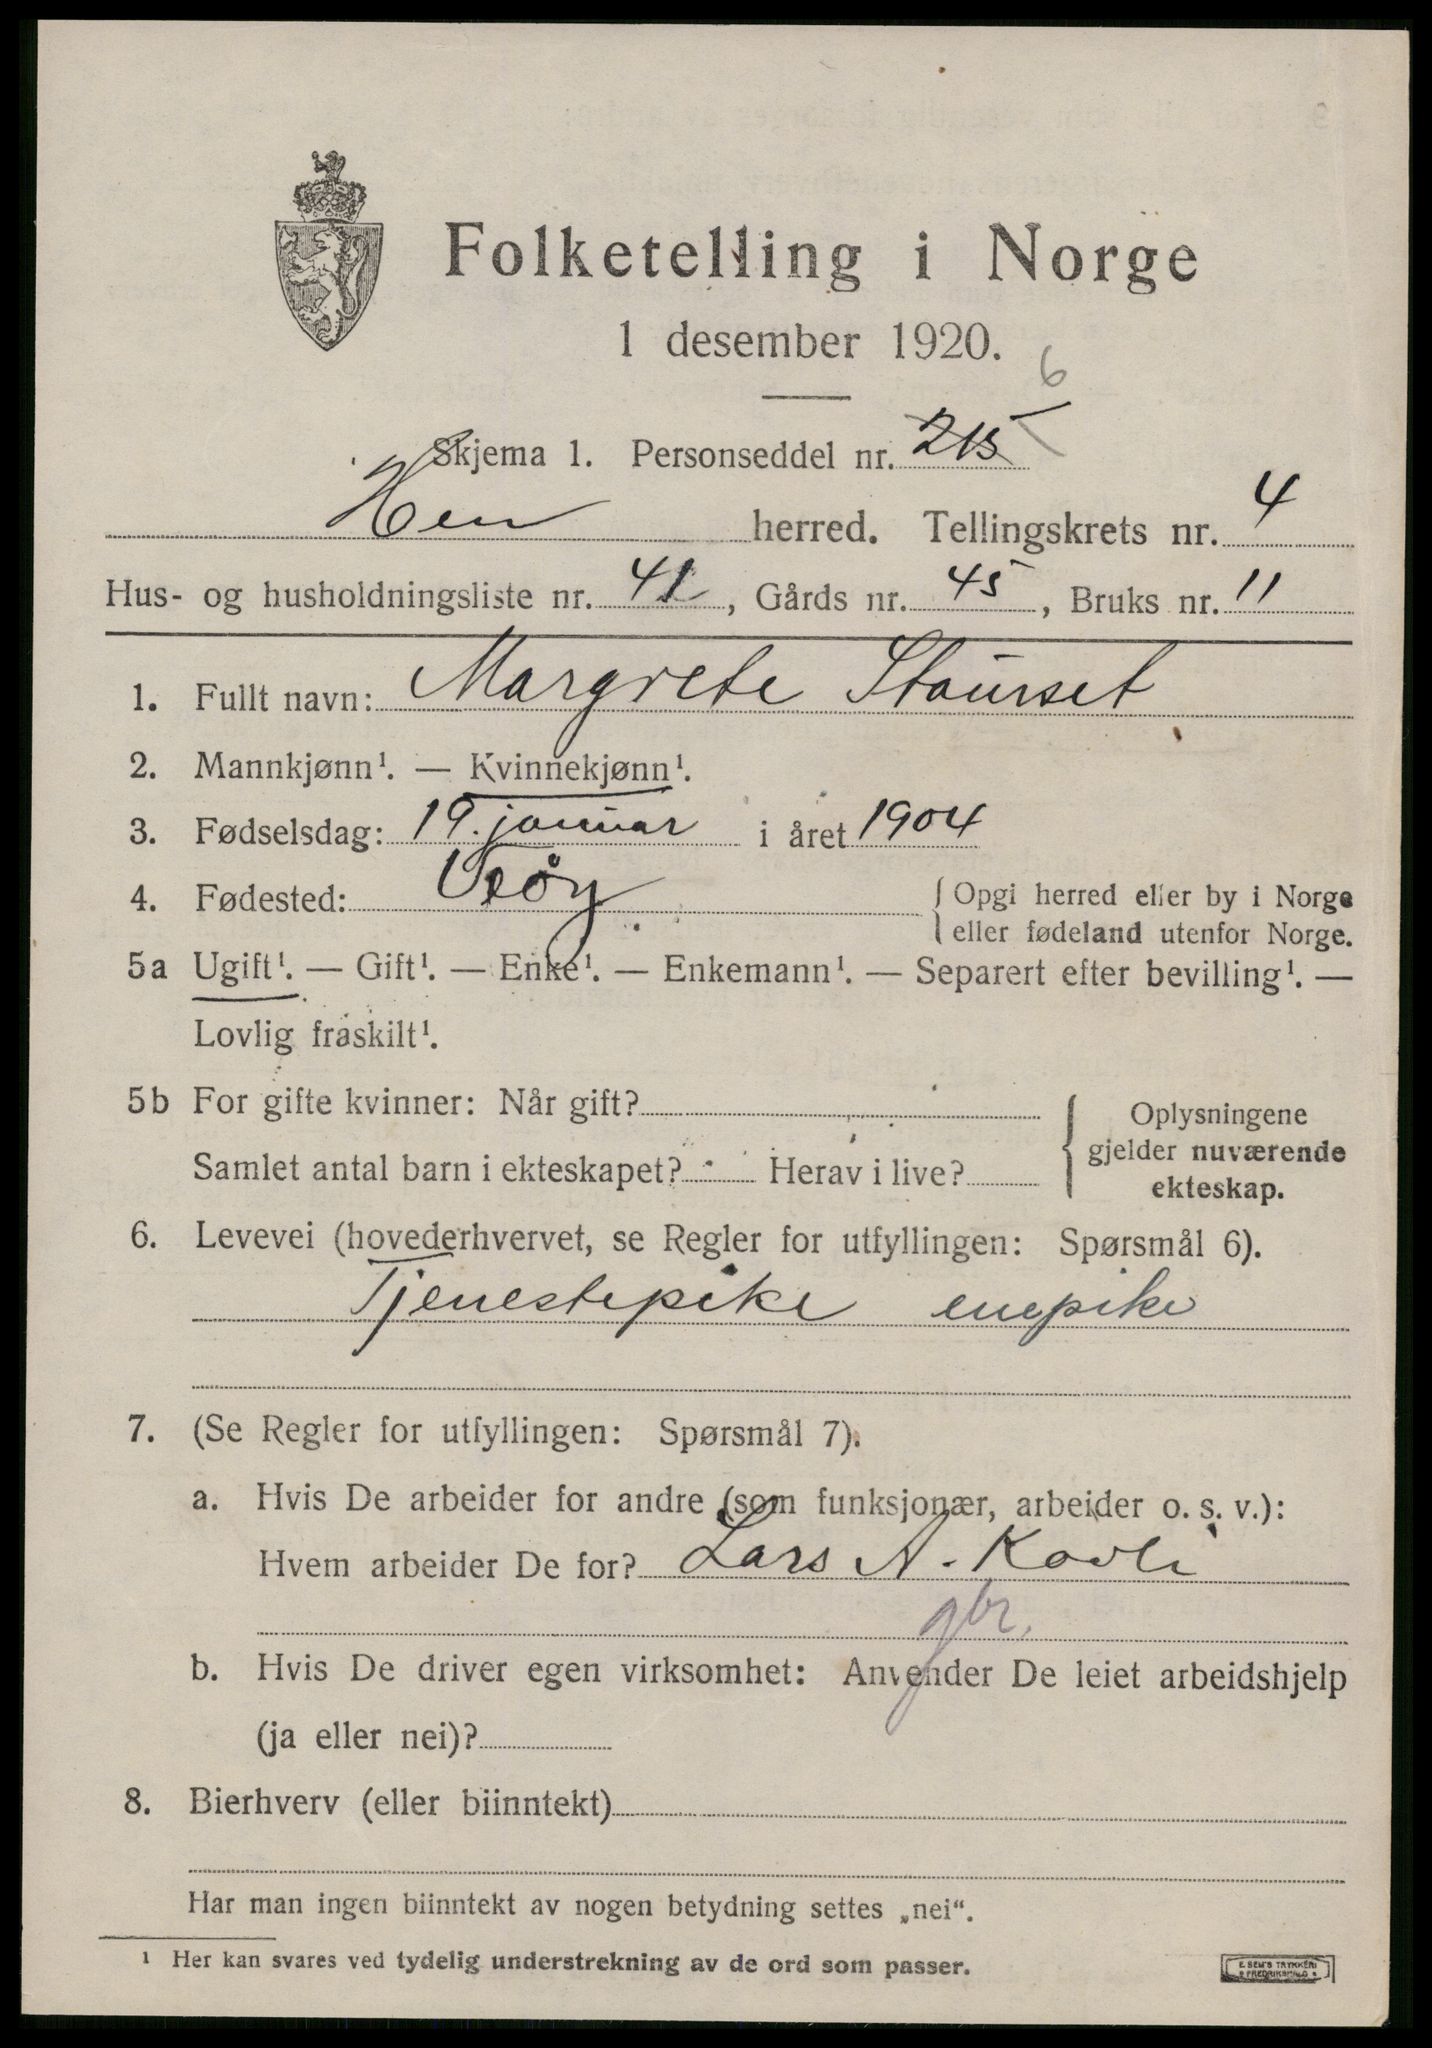 Folketelling i Norge
1 desember 1920.
6
Skjema 1. Personseddel nr. 215
Hen herred. Tellingskrets nr. 4
Hus- og husholdningsliste nr. 41, Gårds nr. 45, Bruks nr. 11
1. Fullt navn: Margrete Staurset
2. Mannkjønn¹. — Kvinnekjønn¹.
3. Fødselsdag: 19. januar i året 1904
4. Fødested: Veøy { Opgi herred eller by i Norge
eller fødeland utenfor Norge.
5a Ugift¹. — Gift¹. — Enke¹. — Enkemann¹. — Separert efter bevilling¹. —
Lovlig fraskilt¹.
5b For gifte kvinner: Når gift?
Samlet antal barn i ekteskapet? Herav i live?
Oplysningene
gjelder nuværende
ekteskap.
6. Levevei (hovederhvervet, se Regler for utfyllingen: Spørsmål 6).
Tjenestepike enepike
7. (Se Regler for utfyllingen: Spørsmål 7).
a. Hvis De arbeider for andre (som funksjonær, arbeider o. s. v.):
Hvem arbeider De for? Lars A. Kavli
gbr.
b. Hvis De driver egen virksomhet: Anvender De leiet arbeidshjelp
(ja eller nei)?
8. Bierhverv (eller biinntekt)
Har man ingen biinntekt av nogen betydning settes „nei“.
¹ Her kan svares ved tydelig understrekning av de ord som passer.
E. SEM'S TRYKKERI
FREDRIKSHALD